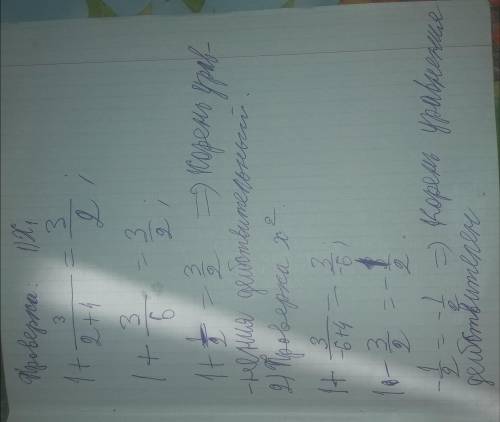 Проверка: 1) x₁
1 + 3/(2+4) = 3/2;
1 + 3/6 = 3/2;
1 + 1/2 = 3/2 => Корень урав-
-нения действительный.
2) Проверка x².
1 + 3/(-6+4) = 3/-6;
1 - 3/2 = -1/2.
-1/2 = -1/2 => Корень уравнения
действителен